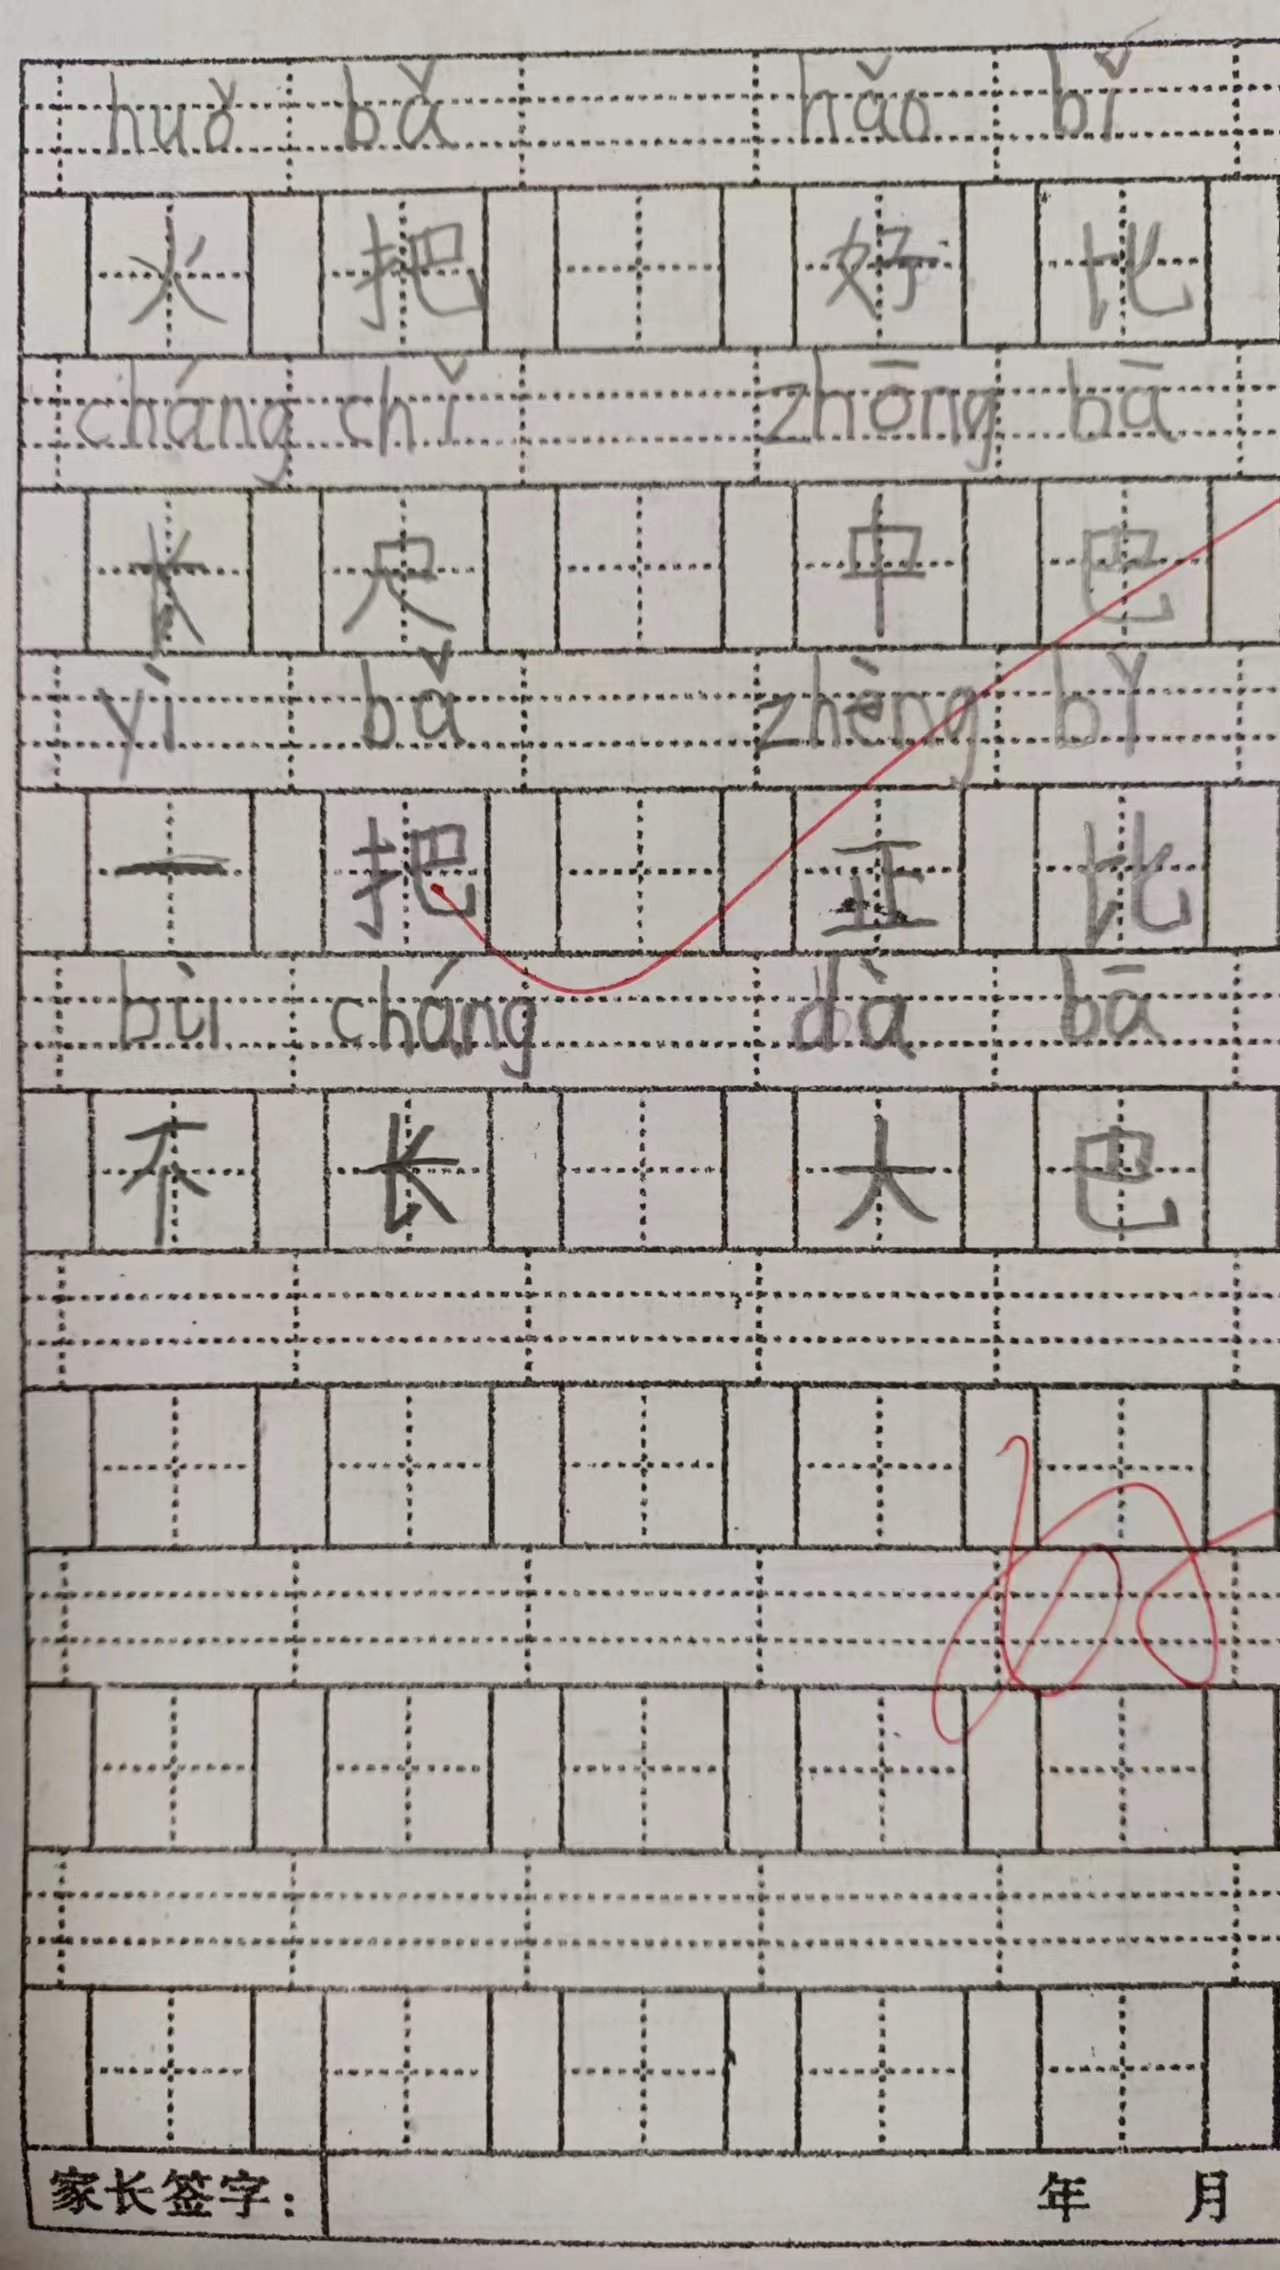 huǒ bǎ hǎo bǐ
火 把 好 比
cháng chǐ zhōng bā
长 尺 中 巴
yì bǎ zhèng bǐ
一 把 正 比
bù cháng dà bā
不 长 大 巴
100
家长签字： 年 月